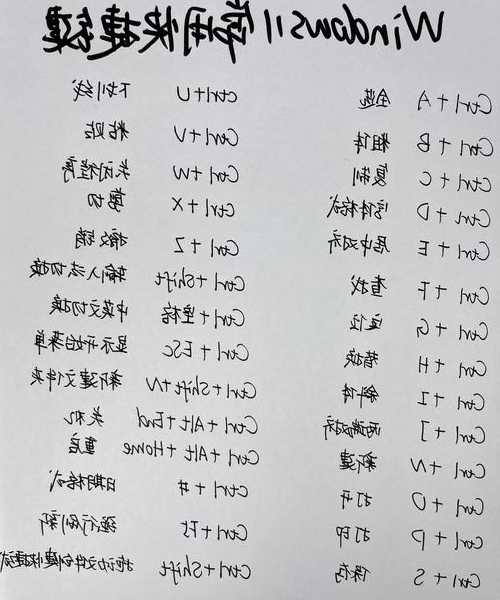 Windows 11常用快捷键
Ctrl + A 全选
Ctrl + B 粗体
Ctrl + C 复制
Ctrl + D 字体格式
Ctrl + E 居中对齐
Ctrl + F 查找
Ctrl + G 定位
Ctrl + H 替换
Ctrl + I 斜体
Ctrl + J 两端对齐
Ctrl + N 新建
Ctrl + O 打开
Ctrl + P 打印
Ctrl + S 保存
Ctrl + U 下划线
Ctrl + V 粘贴
Ctrl + W 关闭程序
Ctrl + X 剪切
Ctrl + Z 撤销
Ctrl + Shift 输入法切换
Ctrl + 空格 中英文切换
Ctrl + ESC 显示开始菜单
Ctrl + Shift + N 新建文件夹
Ctrl + Alt + End 关机
Ctrl + Alt + Home 重启
Ctrl + # 日期格式
Ctrl + F5 强行刷新
Ctrl + Shift 拖动文件创建快捷方式